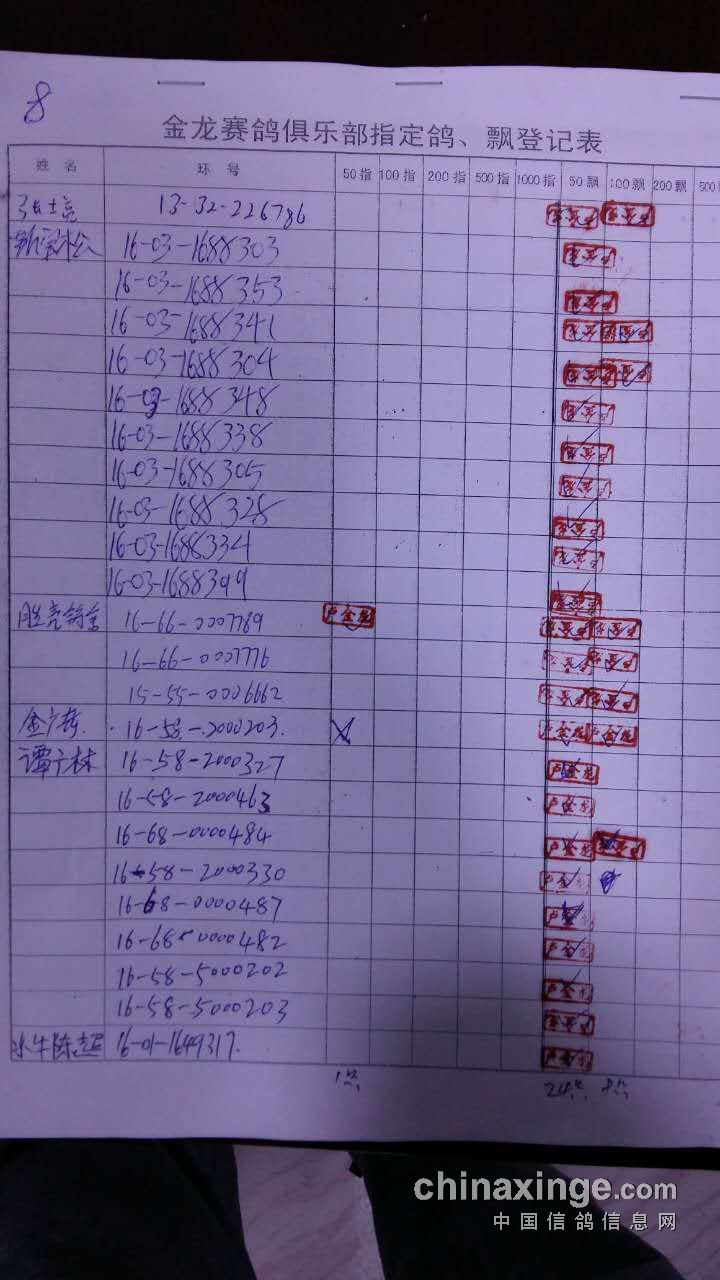 8
金龙赛鸽俱乐部指定鸽、飘登记表
姓 名 环 号 50指 100指 200指 500指 1000指 50飘 100飘 200飘 500
13-32-226786
16-03-1688303
16-03-1688353
16-03-1688341
16-03-1688304
16-03-1688348
16-03-1688338
16-03-1688305
16-03-1688328
16-03-1688334
16-03-1688399
16-66-0007789 卢金龙
16-66-0007776
15-55-0006662
16-58-2000203. 卢金龙 卢金龙
谭广林 16-58-2000327 卢金龙
16-58-2000463 卢金龙
16-68-0000484 卢金龙 卢金龙
16-58-2000330 卢金龙
16-68-0000487 卢金龙
16-68-0000482 卢金龙
16-58-5000202 卢金龙
16-58-5000203 卢金龙
水牛陈志 16-01-1649317. 卢金龙
chinaxinge.com
中国信鸽信息网